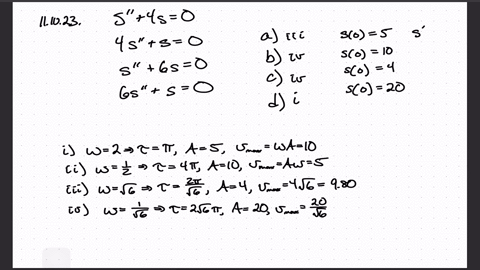 11.10.23. s"+4s=0
4s"+s=0
s"+6s=0
6s"+s=0
a) iii s(0)=5 s'
b) iv s(0)=10
c) iv s(0)=4
d) i s(0)=20
i) ω=2 ⇒ τ=π, A=5, v_max=ωA=10
(ii) ω=1/2 ⇒ τ=4π, A=10, v_max=Aω=5
(iii) ω=√6 ⇒ τ=2π/√6, A=4, v_max=4√6=9.80
(iv) ω=1/√6 ⇒ τ=2√6π, A=20, v_max=20/√6